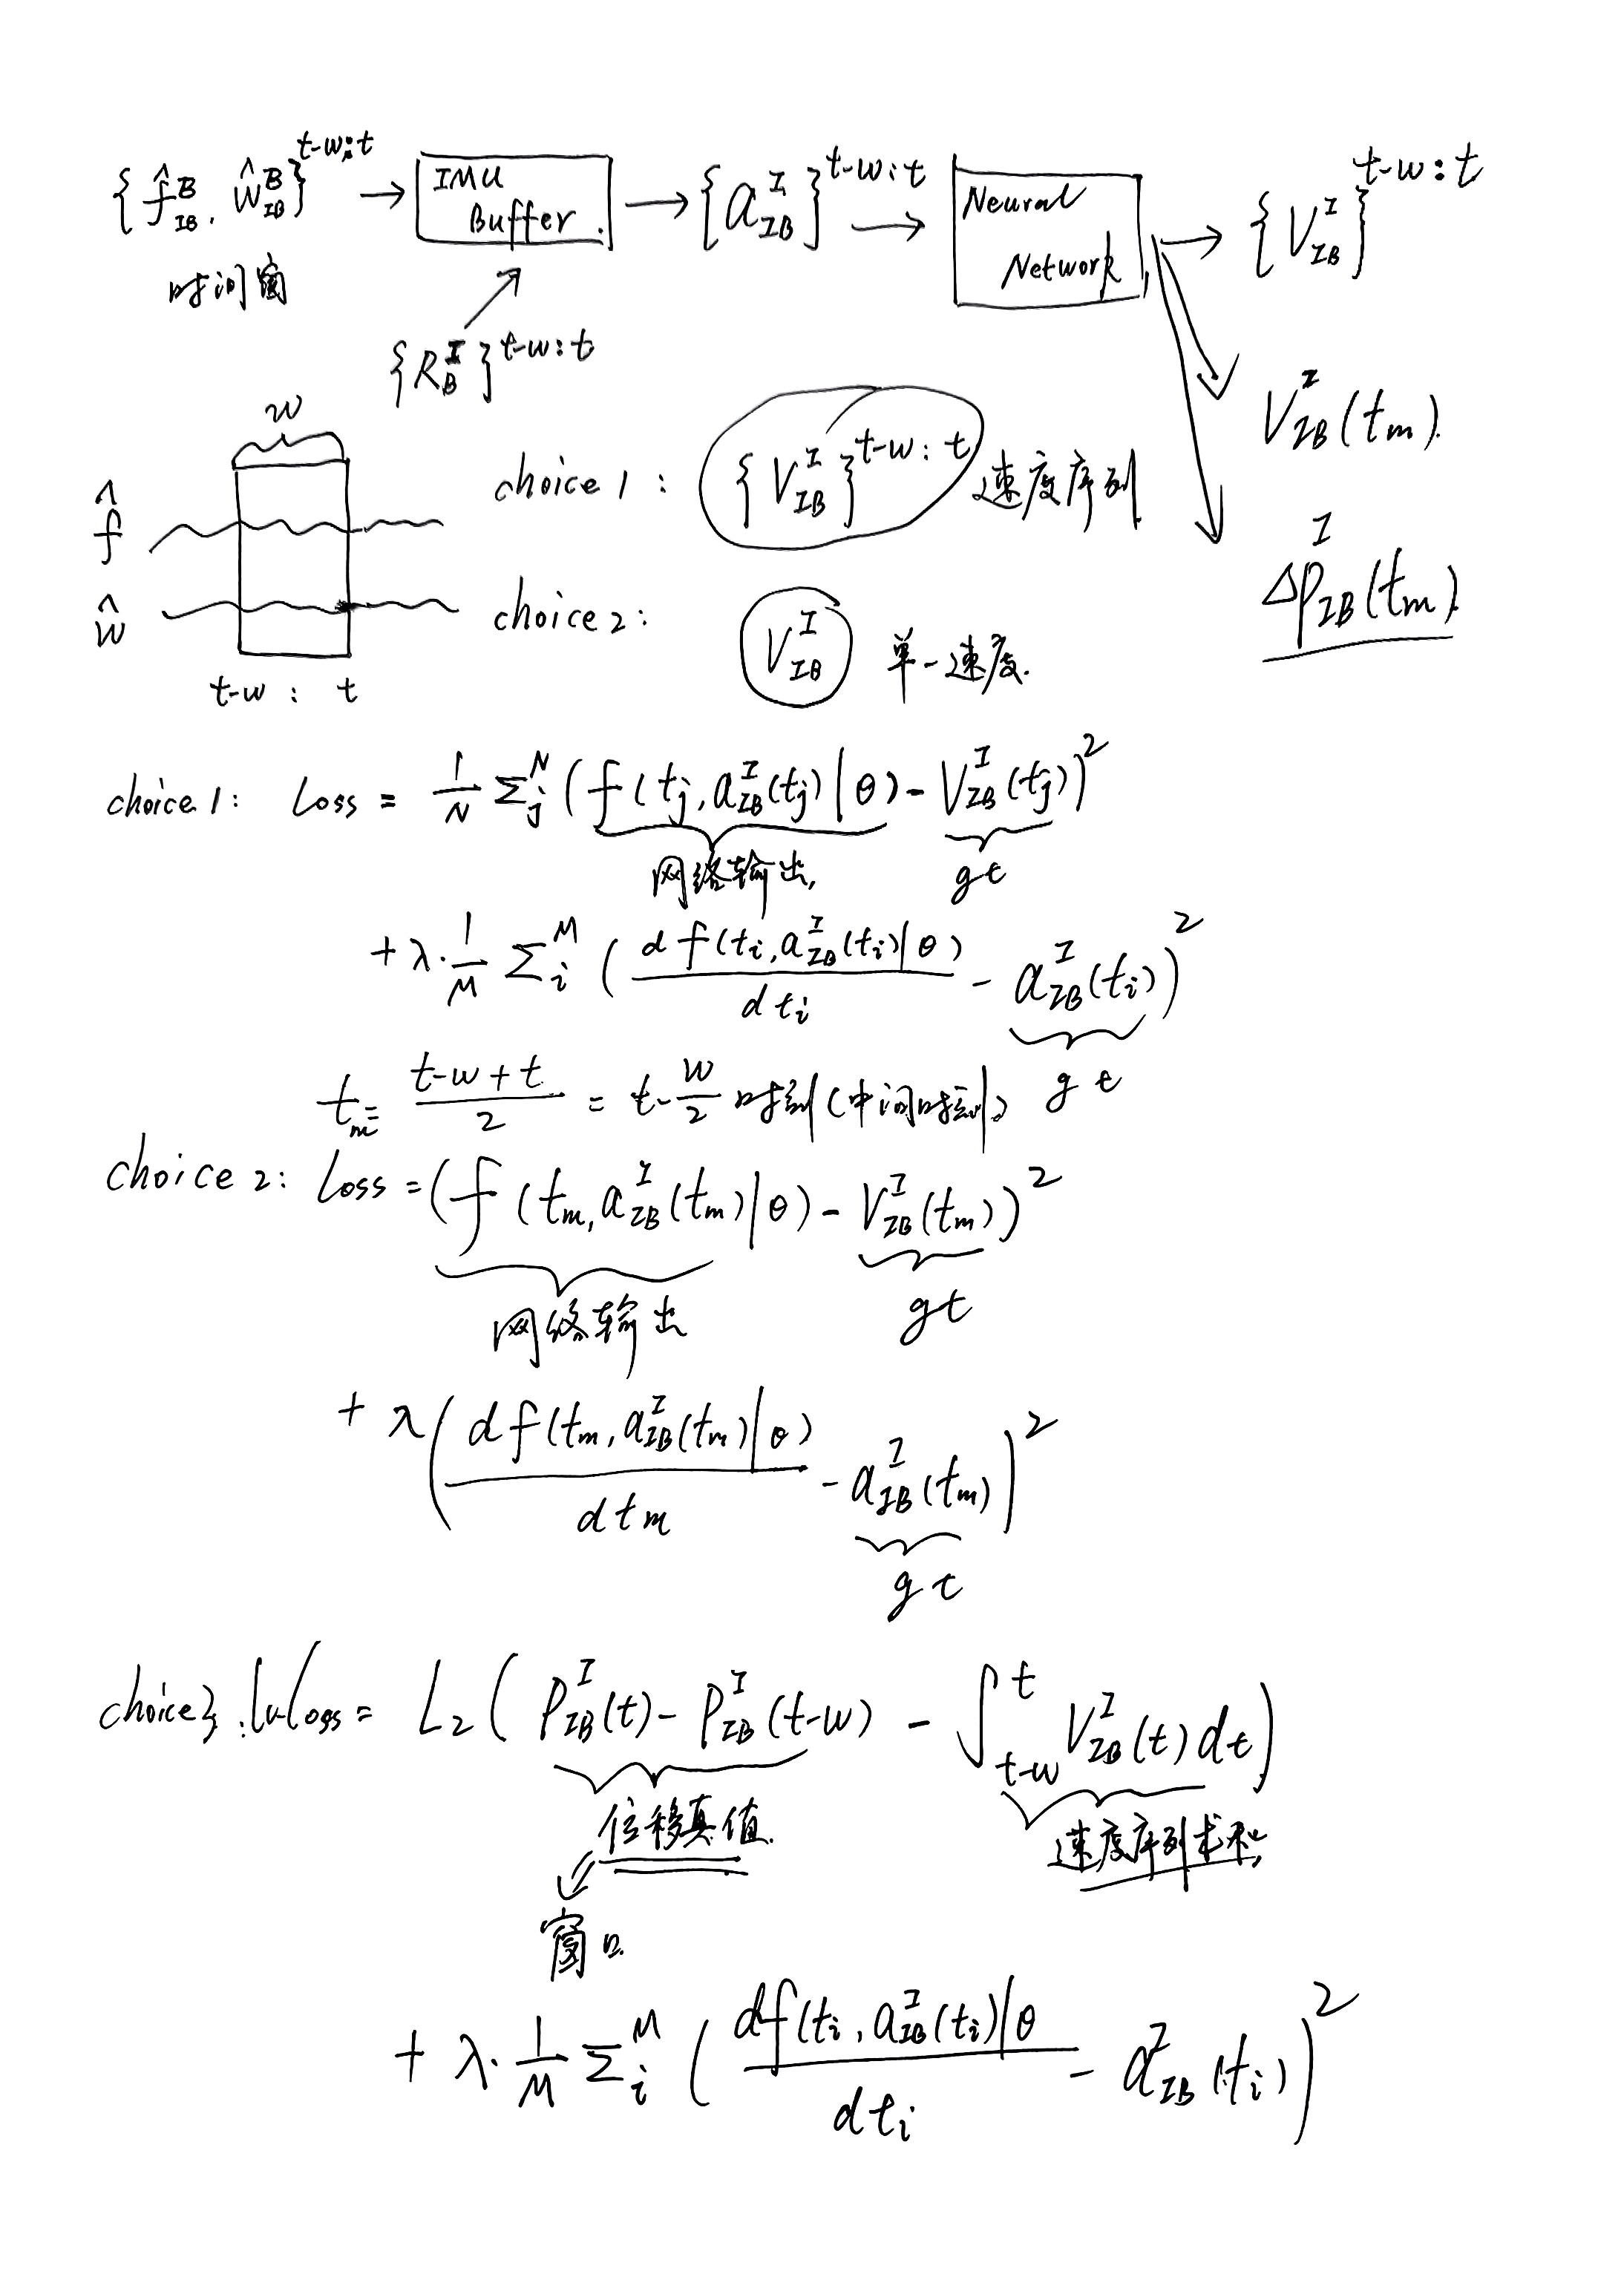 {f̂_IB^B, ŵ_IB^B}^{t-w:t} → IMU Buffer. → {a_IB^I}^{t-w:t} → Neural Network → {V_IB^I}^{t-w:t}
时间窗
{R_B^I}^{t-w:t}
V_IB^I(t_m).
w
choice 1: {V_IB^I}^{t-w:t} 速度序列
f̂
ΔP_IB^I(t_m).
ŵ
choice 2: V_IB^I 单一速度.
t-w : t
choice 1: Loss = 1/N Σ_j^N (f(t_j, a_IB^I(t_j)|θ) - V_IB^I(t_j))^2
网络输出, gt
+ λ·1/M Σ_i^M (d f(t_i, a_IB^I(t_i)|θ) / d t_i - a_IB^I(t_i))^2
gt
t_m = (t-w+t)/2 = t-w/2 时刻(中间时刻)
choice 2: Loss = (f(t_m, a_IB^I(t_m)|θ) - V_IB^I(t_m))^2
网络输出 gt
+ λ(d f(t_m, a_IB^I(t_m)|θ) / d t_m - a_IB^I(t_m))^2
gt
choice 3: Loss = L_2(P_IB^I(t) - P_IB^I(t-w) - ∫_{t-w}^t V_IB^I(t)dt)
位移真值. 速度序列求和
窗口.
+ λ·1/M Σ_i^M (df(t_i, a_IB^I(t_i)|θ / dt_i - a_IB^I(t_i))^2